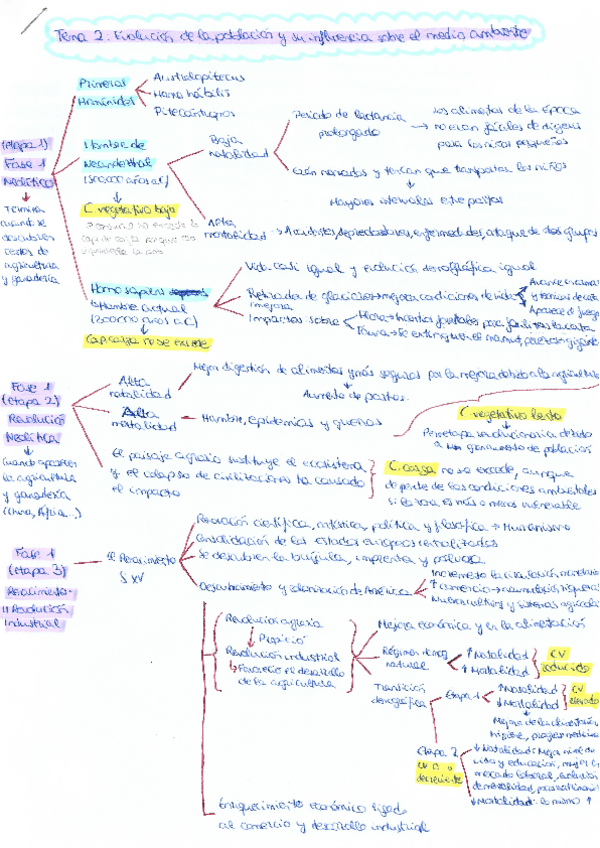 Tema 2: Evolución de la población y su influencia sobre el medio ambiente
(Etapa 1)
Fase 1
Neolítico
Termina
cuando se
descubren
restos de
agricultura
y ganadería
Primeros
Homínidos
Australopitecus
Homo hábilis
Pitecántropos
Hombre de
Neanderthal
C vegetativo bajo
Baja
natalidad
Periodo de lactancia
prolongado
los alimentos de la época
no eran fáciles de digerir
para los niños pequeños
Eran nómadas y tenían que transportar los niños
Mayores intervalos entre partos
Alta
mortalidad
Accidentes, depredadores, enfermedades, ataque de otros grupos
Homo sapiens
Hombre actual
(300000 años a.C)
Cap carga no se exede
Vida casi igual y evolución demográfica igual
Retirada de glaciares → mejora condiciones de vida
mejora
Impactos sobre
Fase 1
(etapa 2)
Revolución
Neolítica
Cuando aparece
la agricultura
y ganadería
Alta
natalidad
Mejor digestión de alimentos y más seguros por la mejora debido a la agricultura
Aumento de partos.
Alta
mortalidad
Hambre, epidemias y guerras
C vegetativo lento
Pero etapa revolucionaria debido
a un aumento de población
El paisaje agrario sustituye el ecosistema
y el colapso de civilizaciones ha causado
el impacto
C. carga no se excede, aunque
depende de las condiciones ambientales
si la zona es más o menos vulnerable
Fase 1
(etapa 3)
Renacimiento-
Revolución
Industrial
el Renacimiento
S XV
Renovación científica, artística, política y filosófica → Humanismo
Consolidación de los estados europeos centralizados
Se descubren la brújula, imprenta y pólvora
Descubrimiento y colonización de América
↑ comercio → acumulación riquezas
Nuevos cultivos y sistemas agrícolas
Revolución agraria
Propició
Revolución industrial
Favoreció el desarrollo
de la agricultura
Mejora económica y en la alimentación
Régimen demog
natural
↑ Natalidad
↑ Mortalidad
CV
reducido
Transición
demográfica
Etapa 1
↑ Natalidad
↓ Mortalidad
CV
elevado
Mejora de la alimentación
higiene, progreso medicina
Etapa 2
decreciente
↓ Natalidad: Mejor nivel de
vida y educación, mujer en
mercado laboral, evolución
de mentalidad,
↓ Mortalidad: lo mismo ↑
Enriquecimiento económico ligado
al comercio y desarrollo industrial